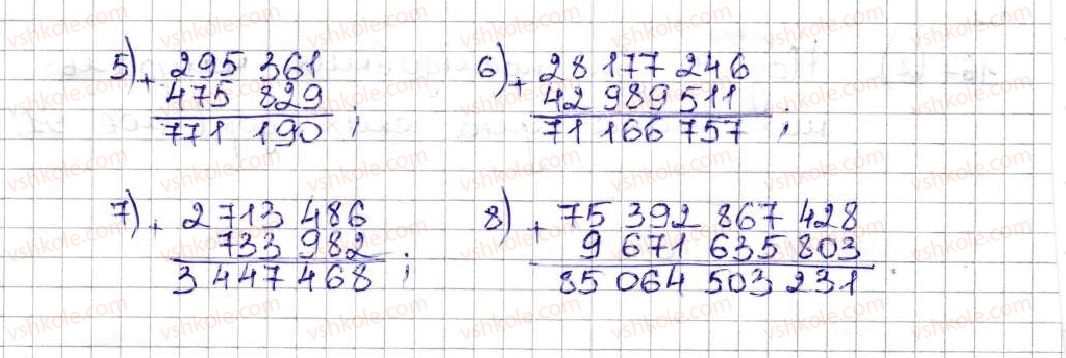 5) + 295 361
475 829
771 190 ;
6) + 28 177 246
42 989 511
71 166 757 ;
7) + 2 713 486
733 982
3 447 468 ;
8) + 75 392 867 428
9 671 635 803
85 064 503 231 .
vshkole.com